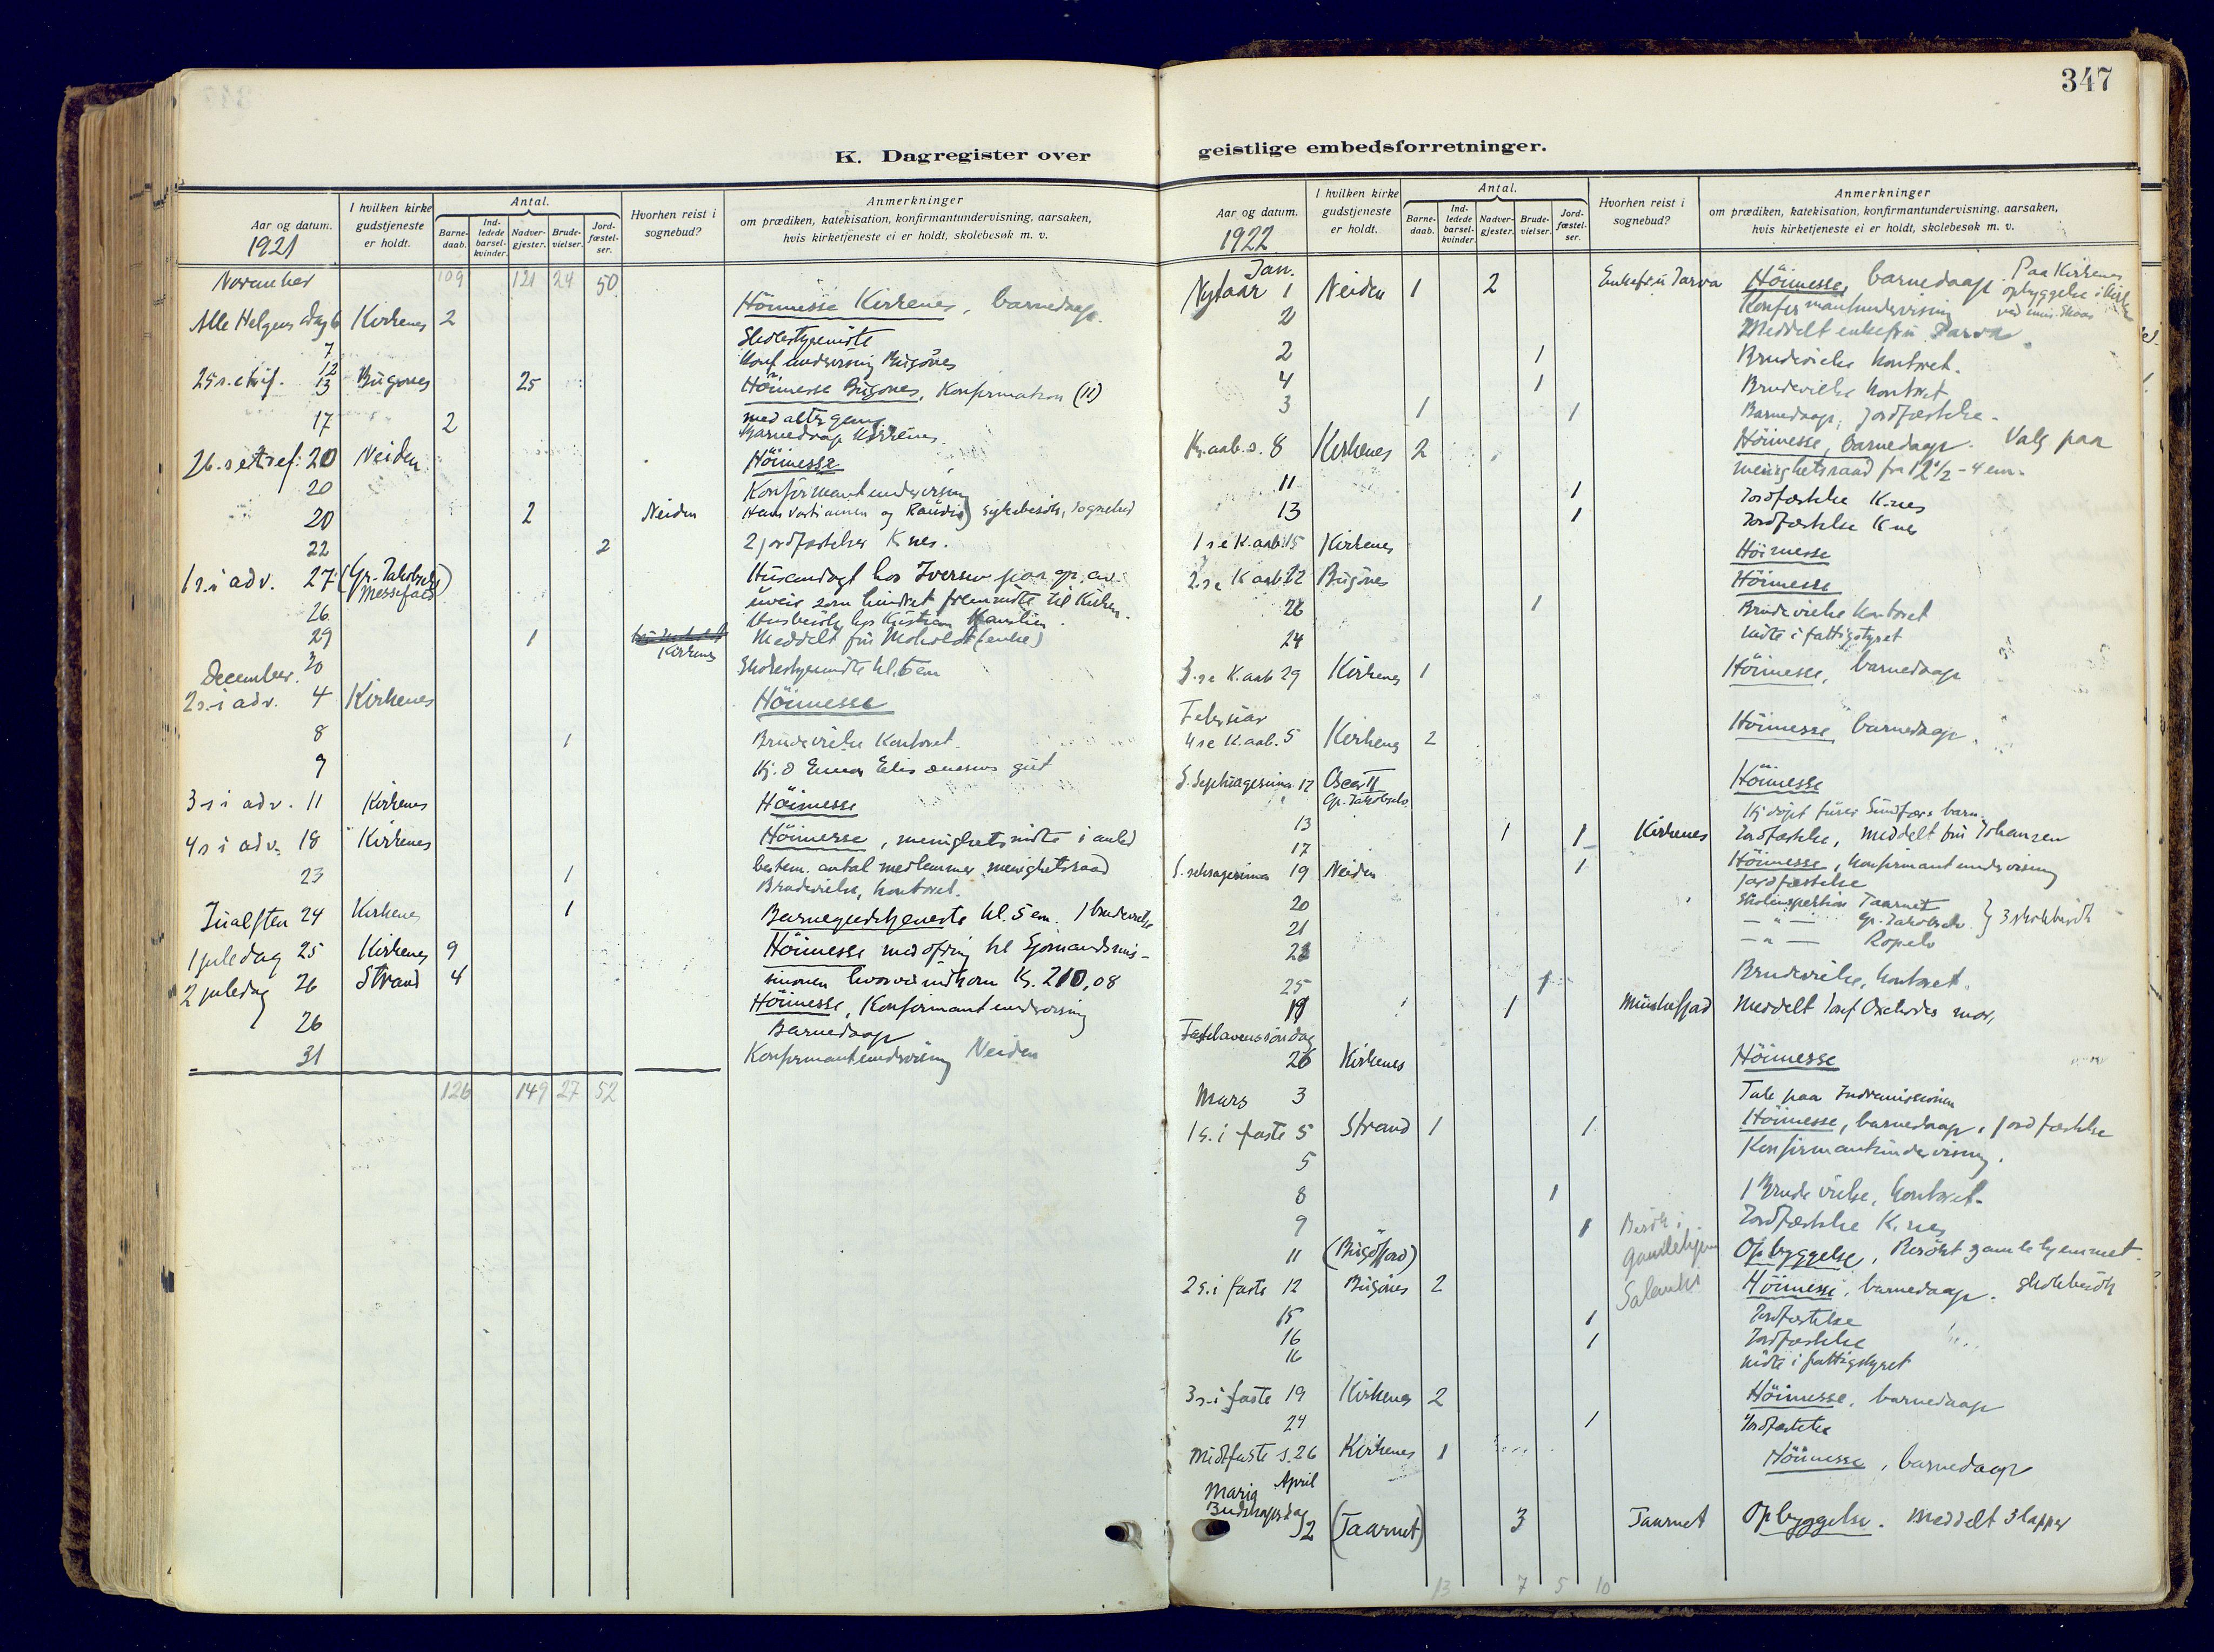 347
K. Dagregister over geistlige embedsforretninger.
Aar og datum. 1921
I hvilken kirke gudstjeneste er holdt.
Antal.
Barne-daab. Ind-ledede barsel-kvinder. Nadver-gjester. Brude-vielser. Jord-fæstel-ser.
Hvorhen reist i sognebud?
Anmerkninger
om prædiken, katekisation, konfirmantundervisning, aarsaken,
hvis kirketjeneste ei er holdt, skolebesøk m. v.
November 109 121 24 50
Alle Helgens dag 6 Kirkenes 2 Höimesse Kirkenes, barnedaap.
7 Skolestyremöte
12 Konf. undervisning Bugönes
25 s. e. tref. 13 Bugönes 25 Höimesse Bugönes, Konfirmation (11)
med altergang
17 2 Barnedaap Kirkenes.
26. s e tref. 20 Neiden Höimesse
20 Konfirmantundervisning
20 2 Neiden sykebesök, sognebud
22 2 2 jordfæstelser K.nes.
1 s. i adv. 27 (Gr. Jakobselv) Husandagt hos Iversen paa gr. av
uveir som hindret fremmöte til Kirken.
26 Husbesök hos Kristian
29 1 Kirkenes Meddelt fru Moholdt (enke)
30 Skolestyremöte kl. 6 em
December.
2 s. i adv. 4 Kirkenes Höimesse
8 1 Brudevielse Kontoret.
9 Hj. d Einar gut
3 s i adv. 11 Kirkenes Höimesse
4 s i adv. 18 Kirkenes Höimesse, menighetsmöte i anled
bestem. antal medlemmer menighetsraad
23 1 Brudevielse, kontoret.
Julaften 24 Kirkenes 1 Barnegudstjeneste kl. 5 em. 1 brudevielse
1 juledag 25 Kirkenes 9 Höimesse med ofring til Sjömandsmis-
sionen hvorved indkom Kr. 210,08
2 juledag 26 Strand 4 Höimesse, Konfirmantundervisning
26 Barnedaap
31 Konfirmantundervisning Neiden
126 149 27 52
Aar og datum. 1922
I hvilken kirke gudstjeneste er holdt.
Antal.
Barne-daab. Ind-ledede barsel-kvinder. Nadver-gjester. Brude-vielser. Jord-fæstel-ser.
Hvorhen reist i sognebud?
Anmerkninger
om prædiken, katekisation, konfirmantundervisning, aarsaken,
hvis kirketjeneste ei er holdt, skolebesøk m. v.
Jan.
Nytaar 1 Neiden 1 2 Enkefru Sarva Höimesse, barnedaap. Paa Kirkenes opbyggelse i kirken
Konfirmantundervisning
2 Meddelt enkefru Sarva.
2 1 Brudevielse Kontoret.
4 1 Brudevielse kontoret
3 1 1 Barnedaap, jordfæstelse.
Kr. aab. s. 8 Kirkenes 2 Höimesse, barnedaap. Valg paa
menighetsraad fra 12 1/2 - 4 em.
11 1 Jordfæstelse K.nes
13 1 Jordfæstelse K.nes
1 s e K. aab. 15 Kirkenes Höimesse
2. s e K. aab. 22 Bugönes Höimesse
26 1 Brudevielse kontoret
24 Möte i fattigstyret
3. s e K. aab. 29 Kirkenes 1 Höimesse, barnedaap
Februar
4 s e K. aab. 5 Kirkenes 2 Höimesse, barnedaap.
S. Septuagesima 12 Oscar II Gr. Jakobselv. Höimesse
13 Hj. döpt barn.
17 1 1 Kirkenes Jordfæstelse, meddelt fru Johansen
S. seksagesima 19 Neiden 1 Höimesse, konfirmantundervisning
jordfæstelse
20 Skoleinspektion Taarnet
21 — " — Gr. Jakobselv } 3 skolebesök
22 — " —
25 1 Brudevielse, kontoret.
19 1 Munkefjord Meddelt mor.
Fastelavenssöndag
26 Kirkenes Höimesse
Mars 3 Tale paa Indremissionen
1 s. i faste 5 Strand 1 1 Höimesse, barnedaap, jordfæstelse
5 Konfirmantundervisning.
8 1 1 Brudevielse, kontoret.
9 1 Jordfæstelse K.nes
11 (Bugöfjord) Besök i gamlehjem Opbyggelse, Besökt gamlehjemmet.
2 s. i faste 12 Bugönes 2 Höimesse, barnedaap. skolebesök
15 1 Jordfæstelse
16 1 Jordfæstelse
16 Möte i fattigstyret
3 s. i faste 19 Kirkenes 2 Höimesse, barnedaap
24 1 Jordfæstelse
Midtfaste s. 26 Kirkenes 1 Höimesse, barnedaap
April
Maria
Budskapsdag 2 (Taarnet) 3 Taarnet Opbyggelse. Meddelt 3 lapper
13 7 5 10